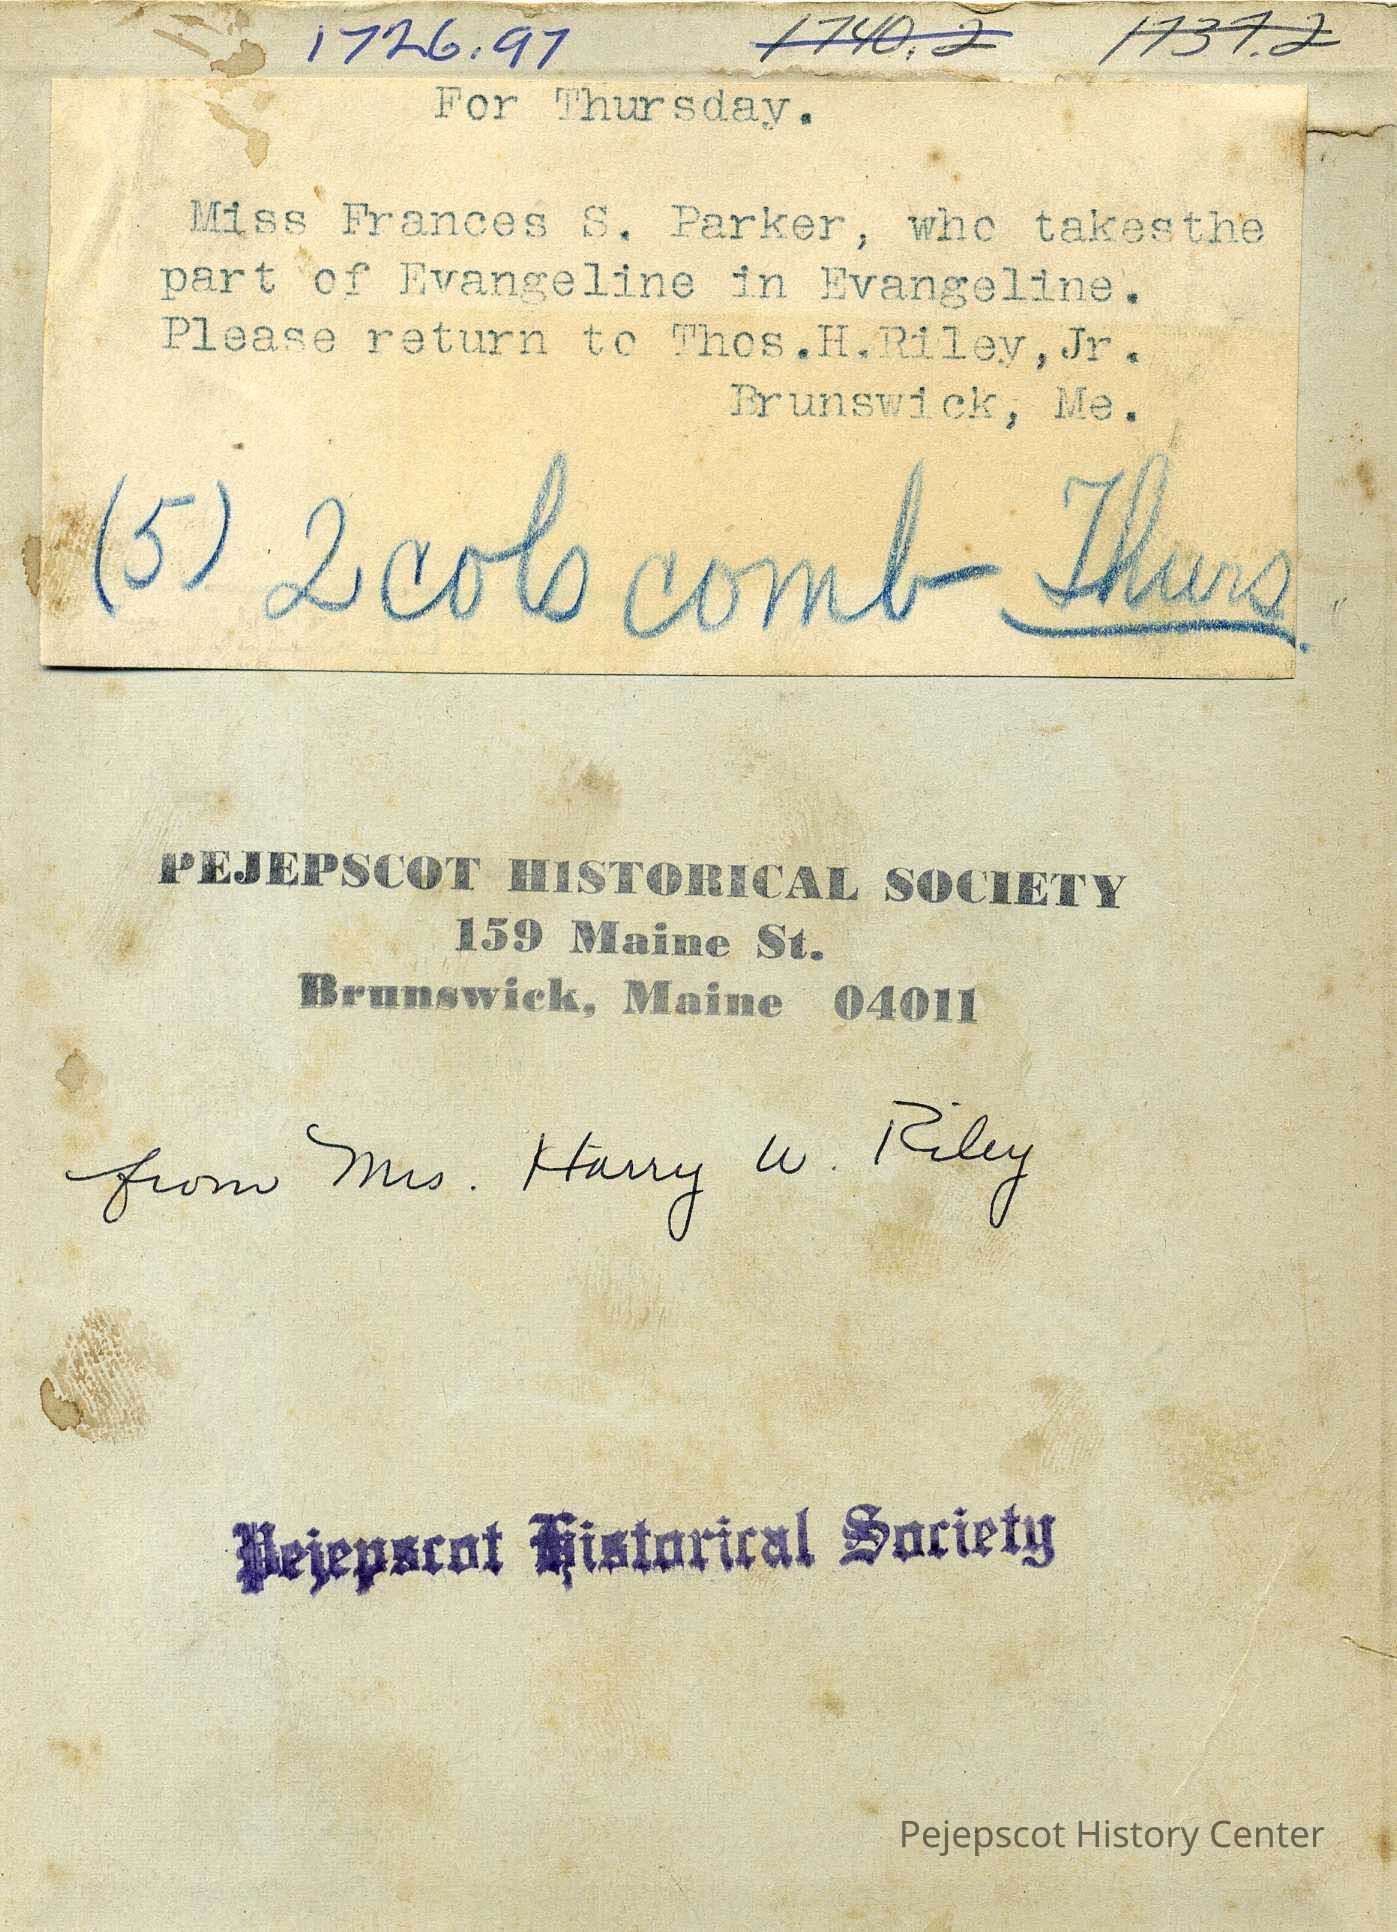 1726.97 1740.2 1737.2
For Thursday.
Miss Frances S. Parker, who takesthe
part of Evangeline in Evangeline.
Please return to Thos.H.Riley,Jr.
Brunswick, Me.
(5) 2 cols comb - Thurs.
PEJEPSCOT HISTORICAL SOCIETY
159 Maine St.
Brunswick, Maine 04011
from Mrs. Harry W. Riley
Pejepscot Historical Society
Pejepscot History Center